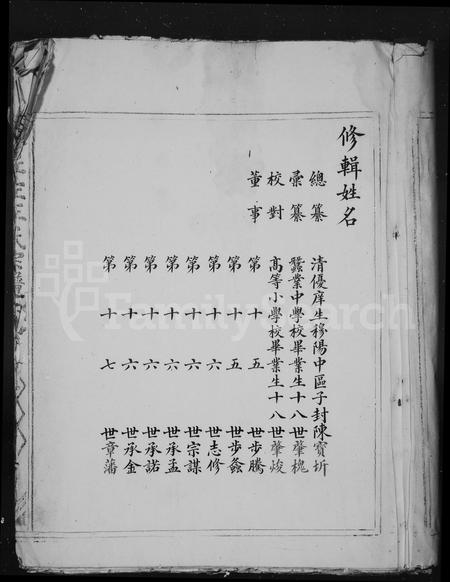 修輯姓名
總纂 清優庠生穆陽中區子封陳寳圻
彙纂 蠶業中學校畢業生十八世肇槐
校對 高等小學校畢業生十八世肇焌
董事 第十五世步騰
第十五世步鰲
第十六世志修
第十六世宗謀
第十六世承孟
第十六世承諾
第十六世承金
第十七世章藩
FamilySearch